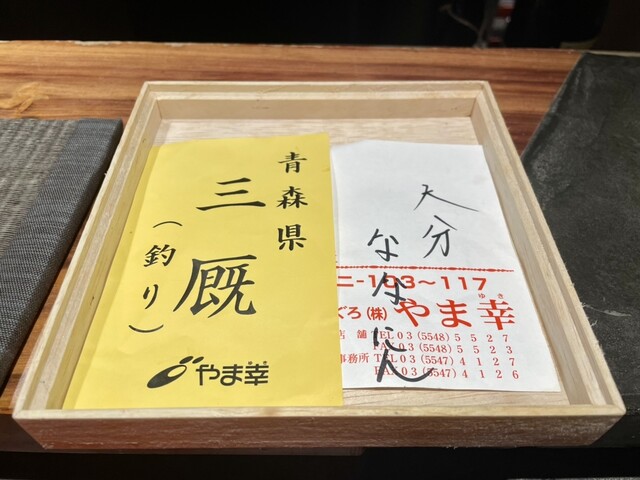 青森県
三厩
(釣り)
やま幸
大分
ななにん
ニ-103～117
ぐろ(株)やま幸
ゆき
店舗 TEL 03 (5548) 5527
FAX 03 (5548) 5523
事務所 TEL 03 (5547) 4127
FAX 03 (5547) 4126